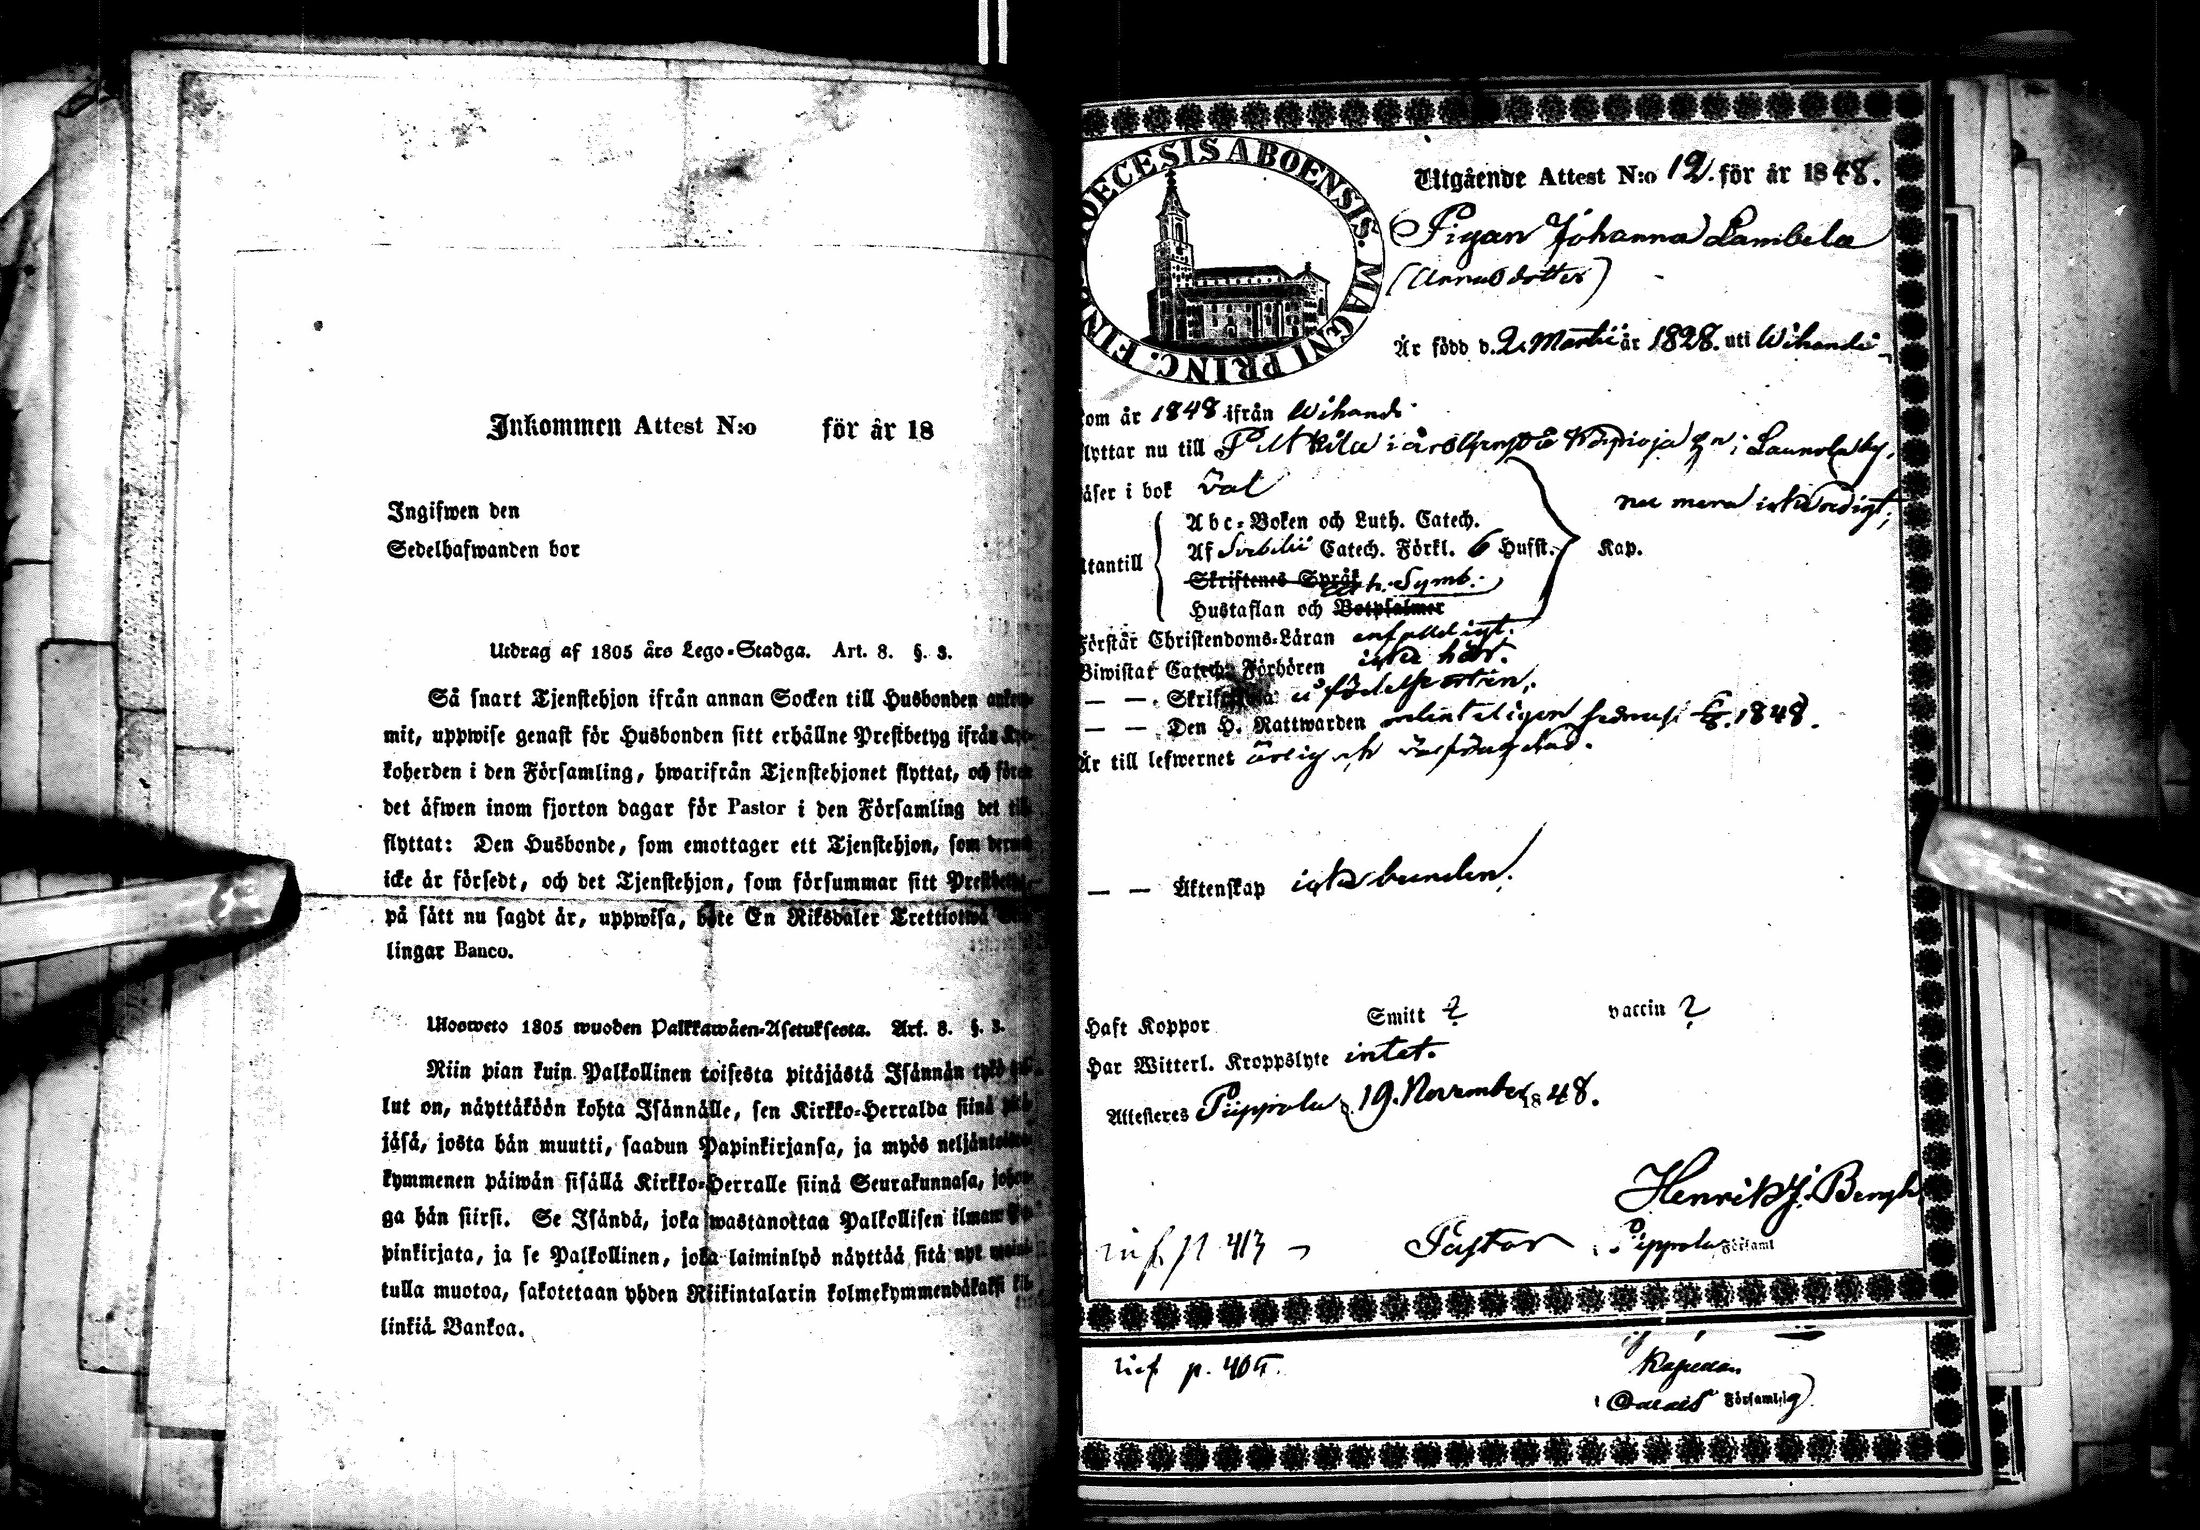 Inkommen Attest N:o för år 18
Ingifwen den
Sedelhafwanden bor
Utdrag af 1805 års Lego-Stadga. Art. 8. §. 3.
Så snart Tjenstehjon ifrån annan Socken till Husbonden
mit, uppwise genast för Husbonden sitt erhållne Prestbetyg ifrån
koherden i den Församling, hwarifrån Tjenstehjonet flyttat, och
det äfwen inom fjorton dagar för Pastor i den Församling det
flyttat: Den Husbonde, som emottager ett Tjenstehjon, som
icke är försedt, och det Tjenstehjon, som försummar sitt
på sätt nu sagdt är, uppwisa, böte En Riksdaler
lingar Banco.
Ulosweto 1805 wuoden Palkkawäen-Asetuksesta. Art. 8. §. 3.
Niin pian kuin Palkollinen toisesta pitäjästä Isännän tykö
lut on, näyttäköön kohta Isännälle, sen Kirkko-Herralda siinä
jäsä, josta hän muutti, saadun Papinkirjansa, ja myös
kymmenen päiwän sisällä Kirkko-Herralle siinä Seurakunnasa,
ga hän siirsi. Se Isändä, joka wastanottaa Palkollisen ilman
pinkirjata, ja se Palkollinen, joka laiminlyö näyttää sitä nyt
tulla muotoa, sakotetaan yhden Riikintalarin kolmekymmendäkaksi
linkiä Bankoa.
DIOECESIS ABOENSIS. MAGNI PRINC. FINL.
Utgående Attest N:o 12. för år 1848.
Pigan Johanna Lambela
(Annasdotter)
Är född d. 2. Martii år 1828. uti Wihandi
kom år 1848 ifrån Wihandi
flyttar nu till Pulkkila i Laurola by.
läser i bok väl
nu mera icke redigt;
Abc-Boken och Luth. Catech.
Af Svebilii Catech. Förkl. 6 Hufst. Kap.
utantill
Skriftenes Språk Ath. Symb.
Hustaflan och Botpsalmer
Förstår Christendoms-Läran enfaldigt.
Biwistat Catech. Förhören icke här.
— — Skriftermål å födelseorten.
— — Den H. Nattwarden ordenteligen senast 1848.
Är till lefwernet ärlig och välfrägdad.
— — Äktenskap icke bunden.
Haft Koppor Smitt ? vaccin ?
Har Witterl. Kroppslyte intet.
Attesteres Pippola d. 19. November 1848.
Henrik J. Bergh
inf. p. 413 Pastor i Pippola Församl
inf p. 405.
Kapellan
i Församling